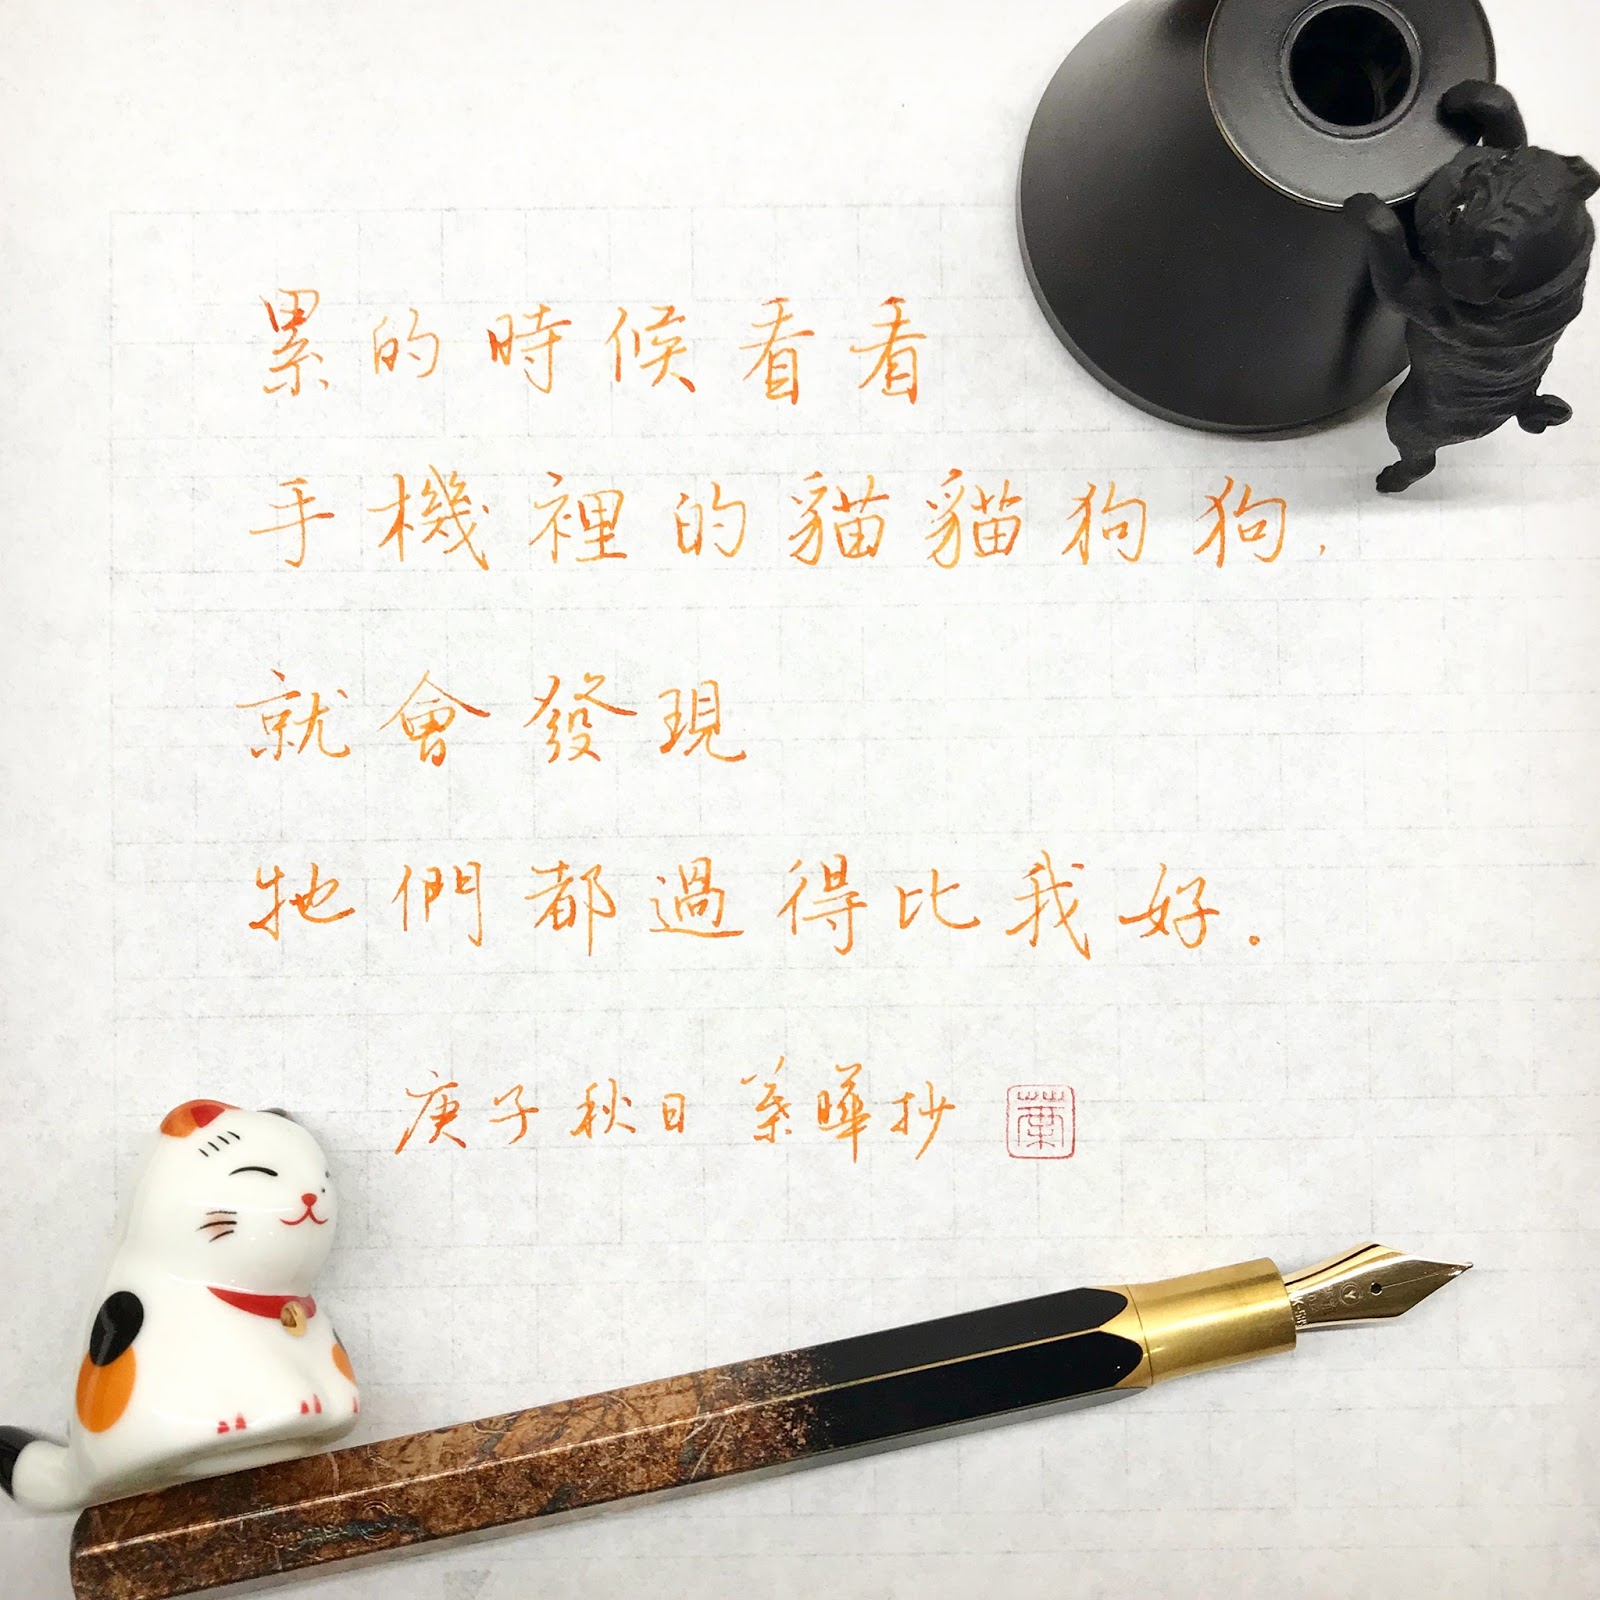 累的時候看看
手機裡的貓貓狗狗，
就會發現
牠們都過得比我好．
庚子秋日 葉曄抄
葉